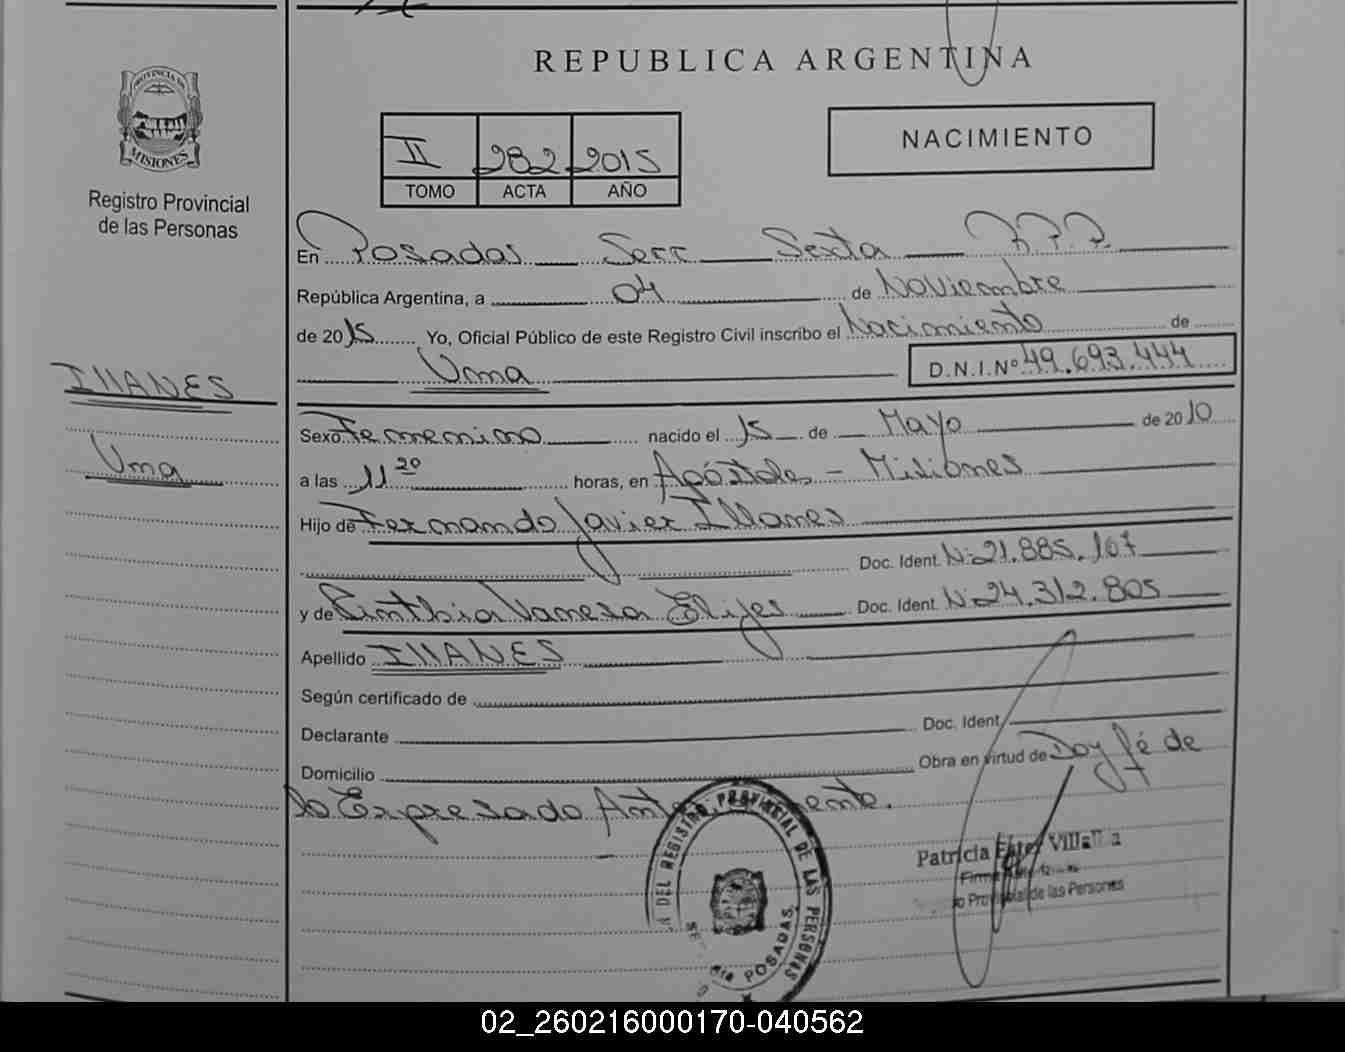 REPUBLICA ARGENTINA
PROVINCIA DE
MISIONES
Registro Provincial
de las Personas
II 282 2015
TOMO ACTA AÑO
NACIMIENTO
En Posadas Secc Sexta R.P.P.
República Argentina, a 04 de Noviembre
de 2015 Yo, Oficial Público de este Registro Civil inscribo el Nacimiento de
Uma D.N.I.Nº 49.693.444
ILLANES
Uma
Sexo Femenino nacido el 15 de Mayo de 2010
a las 11 20 horas, en Apóstoles - Misiones
Hijo de Fernando Javier Illanes
Doc. Ident. Nº 21.885.167
y de Cinthia Vanesa Doc. Ident. Nº 24.312.805
Apellido ILLANES
Según certificado de
Declarante Doc. Ident.
Domicilio Obra en virtud de Doy fé de
lo Expresado
DEL REGISTRO PROVINCIAL DE LAS PERSONAS
POSADAS
Patricia Villalba
Provincial de las Personas
02_260216000170-040562